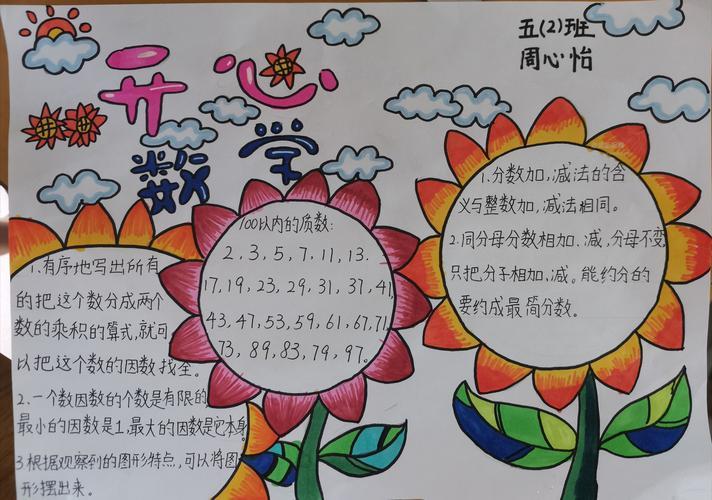 开心
数学
五(2)班
周心怡
1、有序地写出所有
的把这个数分成两个
数的乘积的算式,就可
以把这个数的因数找全。
2、一个数因数的个数是有限的
最小的因数是1,最大的因数是它本身
3.根据观察到的图形特点,可以将图
形摆出来。
100以内的质数:
2,3,5,7,11,13.
17,19,23,29,31,37,41
43,47,53,59,61,67,71
73,89,83,79,97。
1.分数加,减法的含
义与整数加,减法相同。
2.同分母分数相加、减,分母不变
只把分子相加、减。能约分的
要约成最简分数。